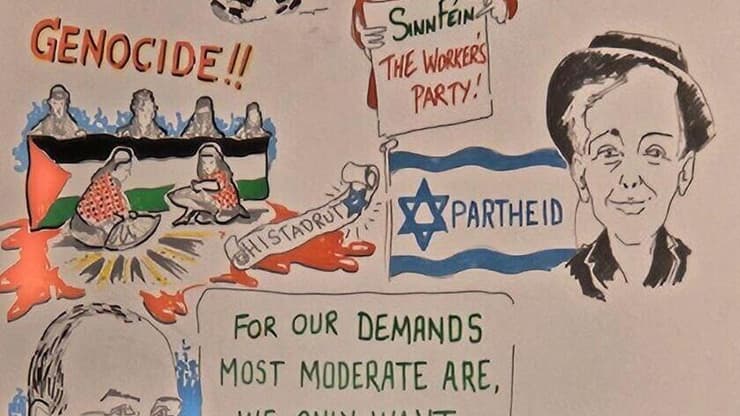 GENOCIDE!!
SINN FÉIN
THE WORKER'S
PARTY!
HISTADRUT
✡PARTHEID
FOR OUR DEMANDS
MOST MODERATE ARE,
WE ONLY WANT